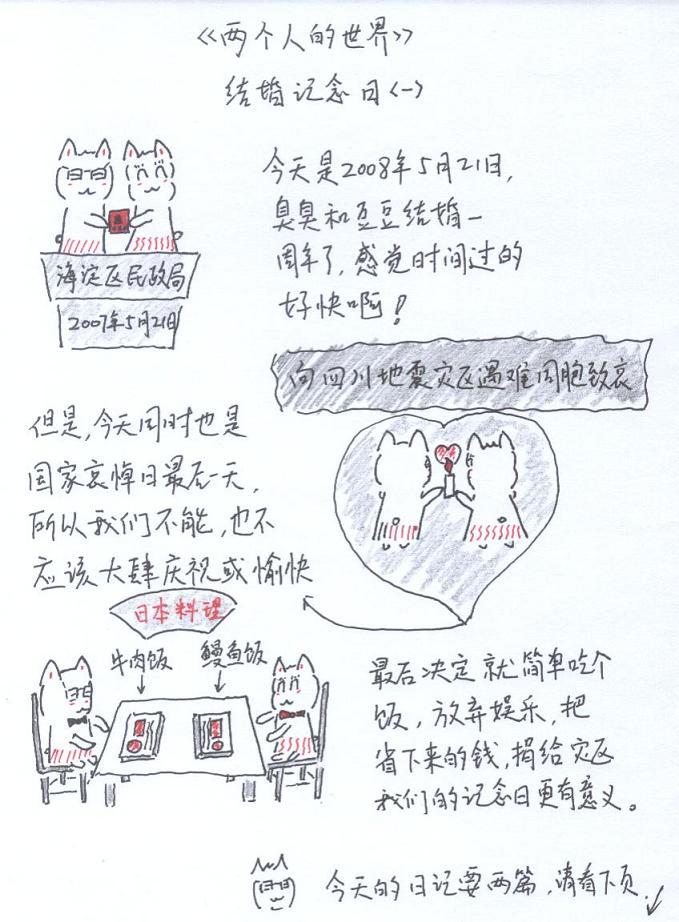 《两个人的世界》
结婚记念日<一>
今天是2008年5月21日,
臭臭和豆豆结婚一
周年了,感觉时间过的
好快啊!
海淀区民政局
2007年5月21日
向四川地震灾区遇难同胞致哀
但是,今天同时也是
国家哀悼日最后一天,
所以我们不能,也不
应该大肆庆祝或愉快
日本料理
牛肉饭
鳗鱼饭
最后决定就简单吃个
饭,放弃娱乐,把
省下来的钱,捐给灾区
我们的记念日更有意义。
今天的日记要两篇,请看下页